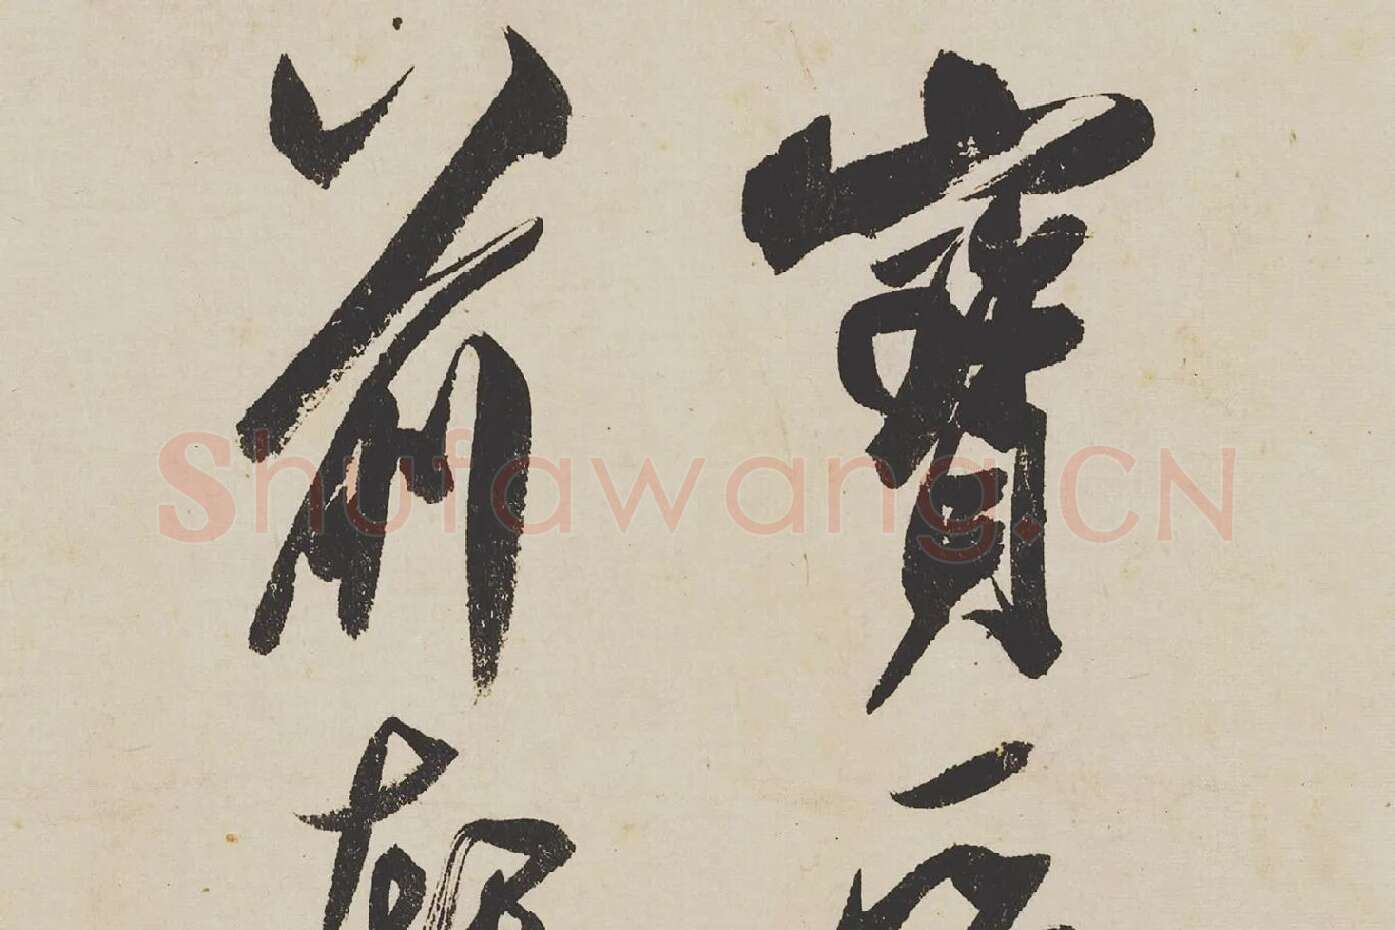 寶
前朝
Shufawang.CN